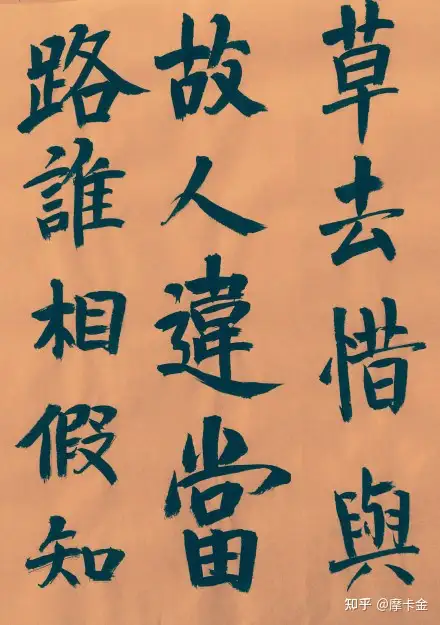 草去惜與
故人違當
路誰相假知
知乎 @摩卡金